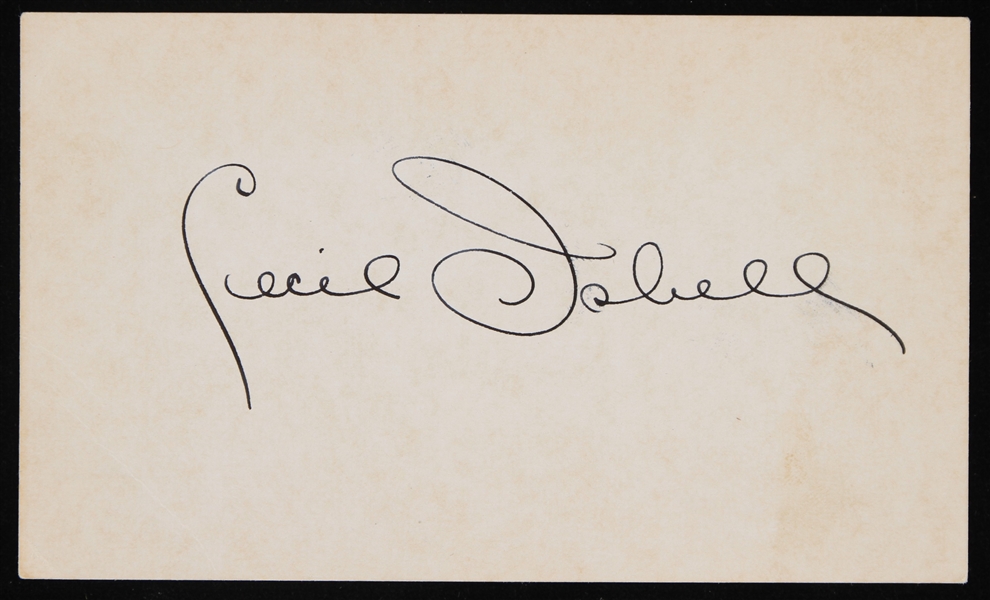 Cecil Isbell